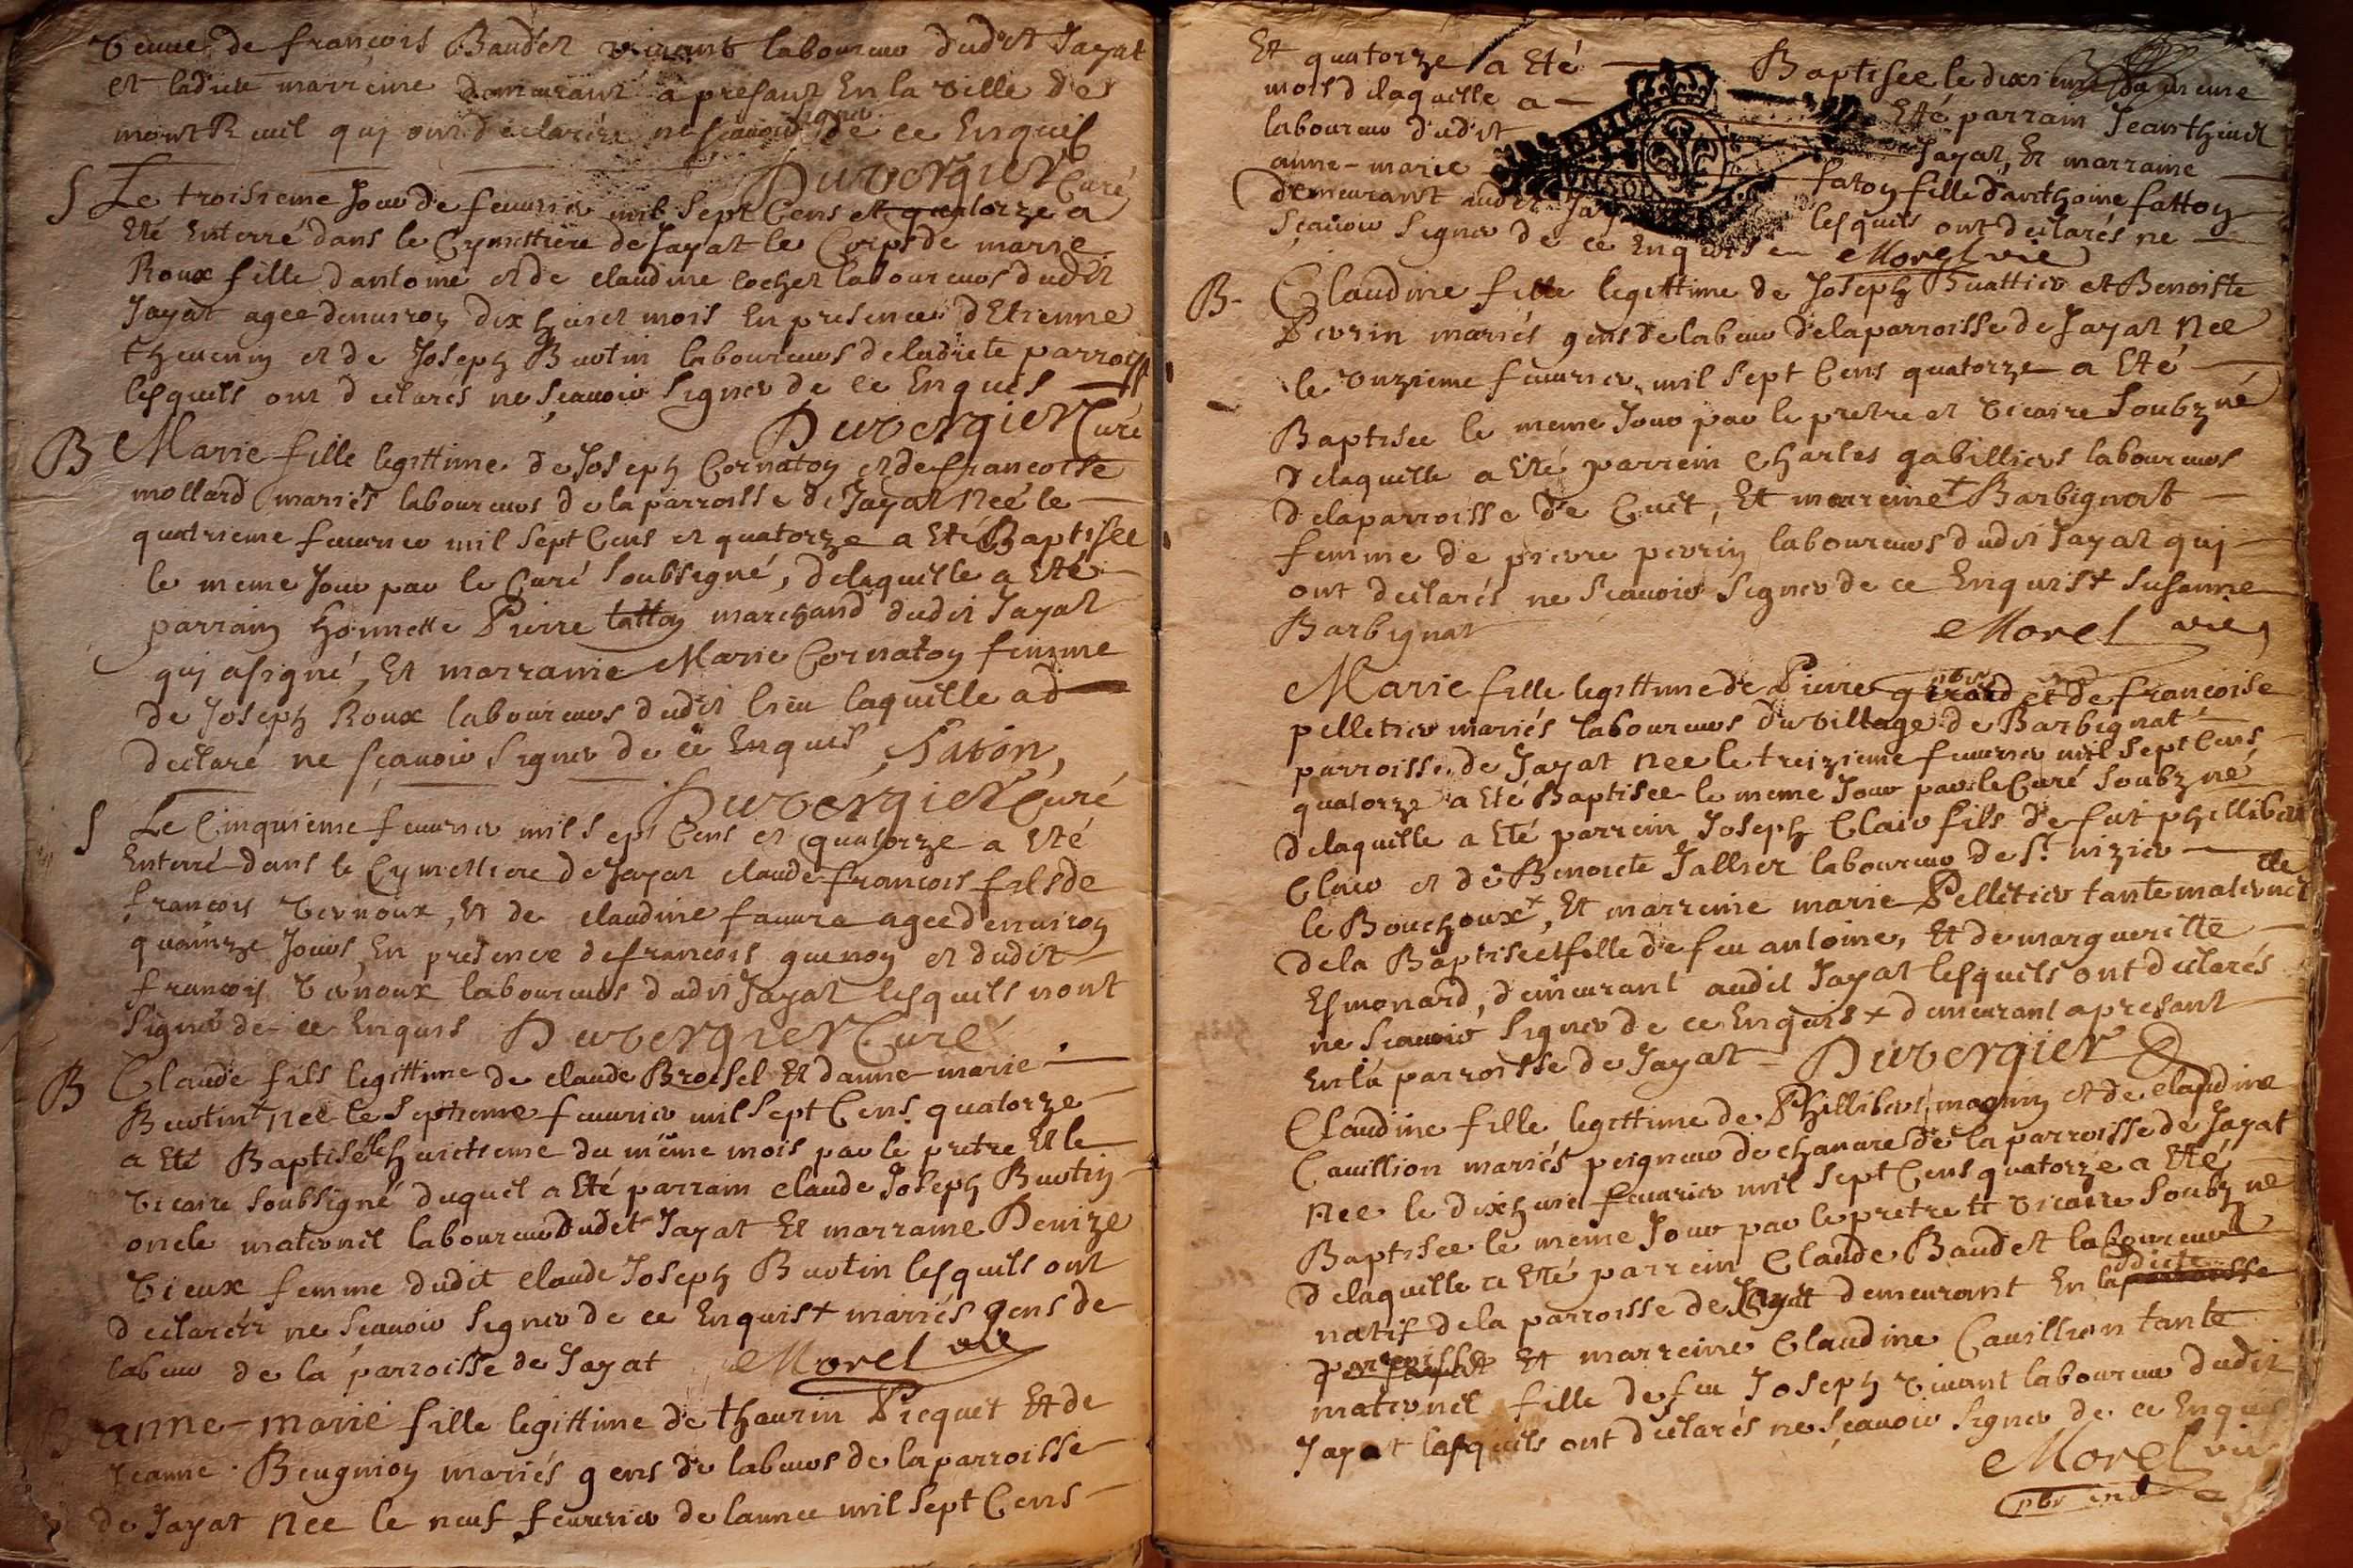 veuue de francois Baudet viuant laboureur dudit Jayat
et ladite marreine demeurant a presant En la ville de
montReuil quj ont declarér ne scauoir signer de ce Enquis
Duvergier Curé
S Le troisieme Jour de feuurier mil sept Cens et quatorze a
Eté Enterré dans le Cymettiere de Jayat le Corps de marie
Roux fille dantoine et de claudine cochet laboureurs dudit
Jayat agee denuiron dix huict mois En presence dEtienne
theuenin et de Joseph Buotin laboureurs deladicte parroiss
lesquels ont declarés ne scauoir signer de ce Enquis
Duvergier Curé
B Marie fille legittime de Joseph Cornaton et de francoise
mollard mariés laboureurs de la parroisse de Jayat Née le
quatrieme feuurier mil sept Cens et quatorze a Eté Baptisée
le meme Jour par le Curé soubsigné, delaquelle a Eté
parrain honnette Pierre fatton marchand dudit Jayat
quj a signé, Et marranie Marie Cornaton femme
de Joseph Roux laboureurs dudit lieu laquelle a d
declaré ne sçauoir signer de ce Enquis, faton,
Duvergier Curé
S Le Cinquieme feuurier mil sept Cens et quatorze a Eté
Enterré dans le Cymettiere de Jayat claude francois fils de
francois vernoux, Et de claudine fauure agee denuiron
quainze Jours, En presence de francois guenon et dudit
francois vernoux laboureurs dudit Jayat lesquels nont
signé de ce Enquis Duvergier Curé
B Claude fils legittime de claude Broisel Et danne-marie
Buotin+ Née le septieme feuurier mil sept Cens quatorze
a Eté Baptisé le huictieme du même mois par le pretre Et le
vicaire soubsigné duquel a Eté parrain claude Joseph Buotin
oncle maternel laboureur dudet Jayat Et marraine Denize
vieux femme dudit claude Joseph Buotin lesquels ont
declarér ne sçauoir signer de ce Enquis+ mariés gens de
labeur de la parroisse de Jayat Morel vic
anne-marie fille legittime de thaurin Picquet Et de
Jeanne Beugnion mariés gens de labeurs de la parroisse
de Jayat Née le neuf feuurier de lannee mil sept Cens
Et quatorze a Eté Baptisee le dixieme du meme
mois delaquelle a Eté parrain Jean thiuet
laboureur dudit Jayat, Et marraine
anne-marie fatoy fille danthoine fattoy
demeurant audit Jayat lesquels ont declarés ne
sçauoir signer de ce Enquis Morel vic
B- Claudine fille legittime de Joseph Buattier et Benoiste
Pevrin mariés gens de labeur delaparroisse de Jayat Née
le vnzieme feuurier mil sept Cens quatorze a Eté
Baptisee le meme Jour par le pretre et vicaire soubzné
delaquelle a Eté parrein Charles gabilliers laboureurs
delaparroisse de Cuet, Et marreine+ Barbignat
femme de pierre pevrin laboureurs dudit Jayat quj
ont declarés ne sçauoir signer de ce Enquis+ susanne
Barbignat Morel vic
Marie fille legittime de Pierre girard et de francoise
pelletier mariés laboureurs du village de Barbignat
parroisse de Jayat Née le treizieme feuurier mil sept Cens
quatorze a Eté Baptisee le meme Jour par le Curé soubzné
delaquelle a Eté parrein Joseph Clair fils de fut philliber
Clair et de Benoicte Jallier laboureur de St nizier
le Bouchoux+, Et marreine marie Pelletier tante maternelle
dela Baptisée fille de feu antoine, Et de margueritte
Esmonard, demeurant audit Jayat lesquels ont declarés
ne scauoir signer de ce Enquis + demeurant apresant
En la parroisse de Jayat Duvergier
Claudine fille legittime de Philliber magnin et de claudine
Cauillion mariés peigneur de chanure de la parroisse de Jayat
Née le dixhuict feuurier mil sept Cens quatorze a Eté
Baptisee le meme Jour par le pretre et vicaire soubzné
delaquelle a Eté parrein Claude Baudet laboureur
natif dela parroisse de Jayat demeurant En ladicte
parroisse Et marreine Claudine Cauillion tante
maternel fille de feu Joseph viuant laboureur dudit
Jayat lesquels ont declarés ne sçauoir signer de ce Enquis
Morel vic